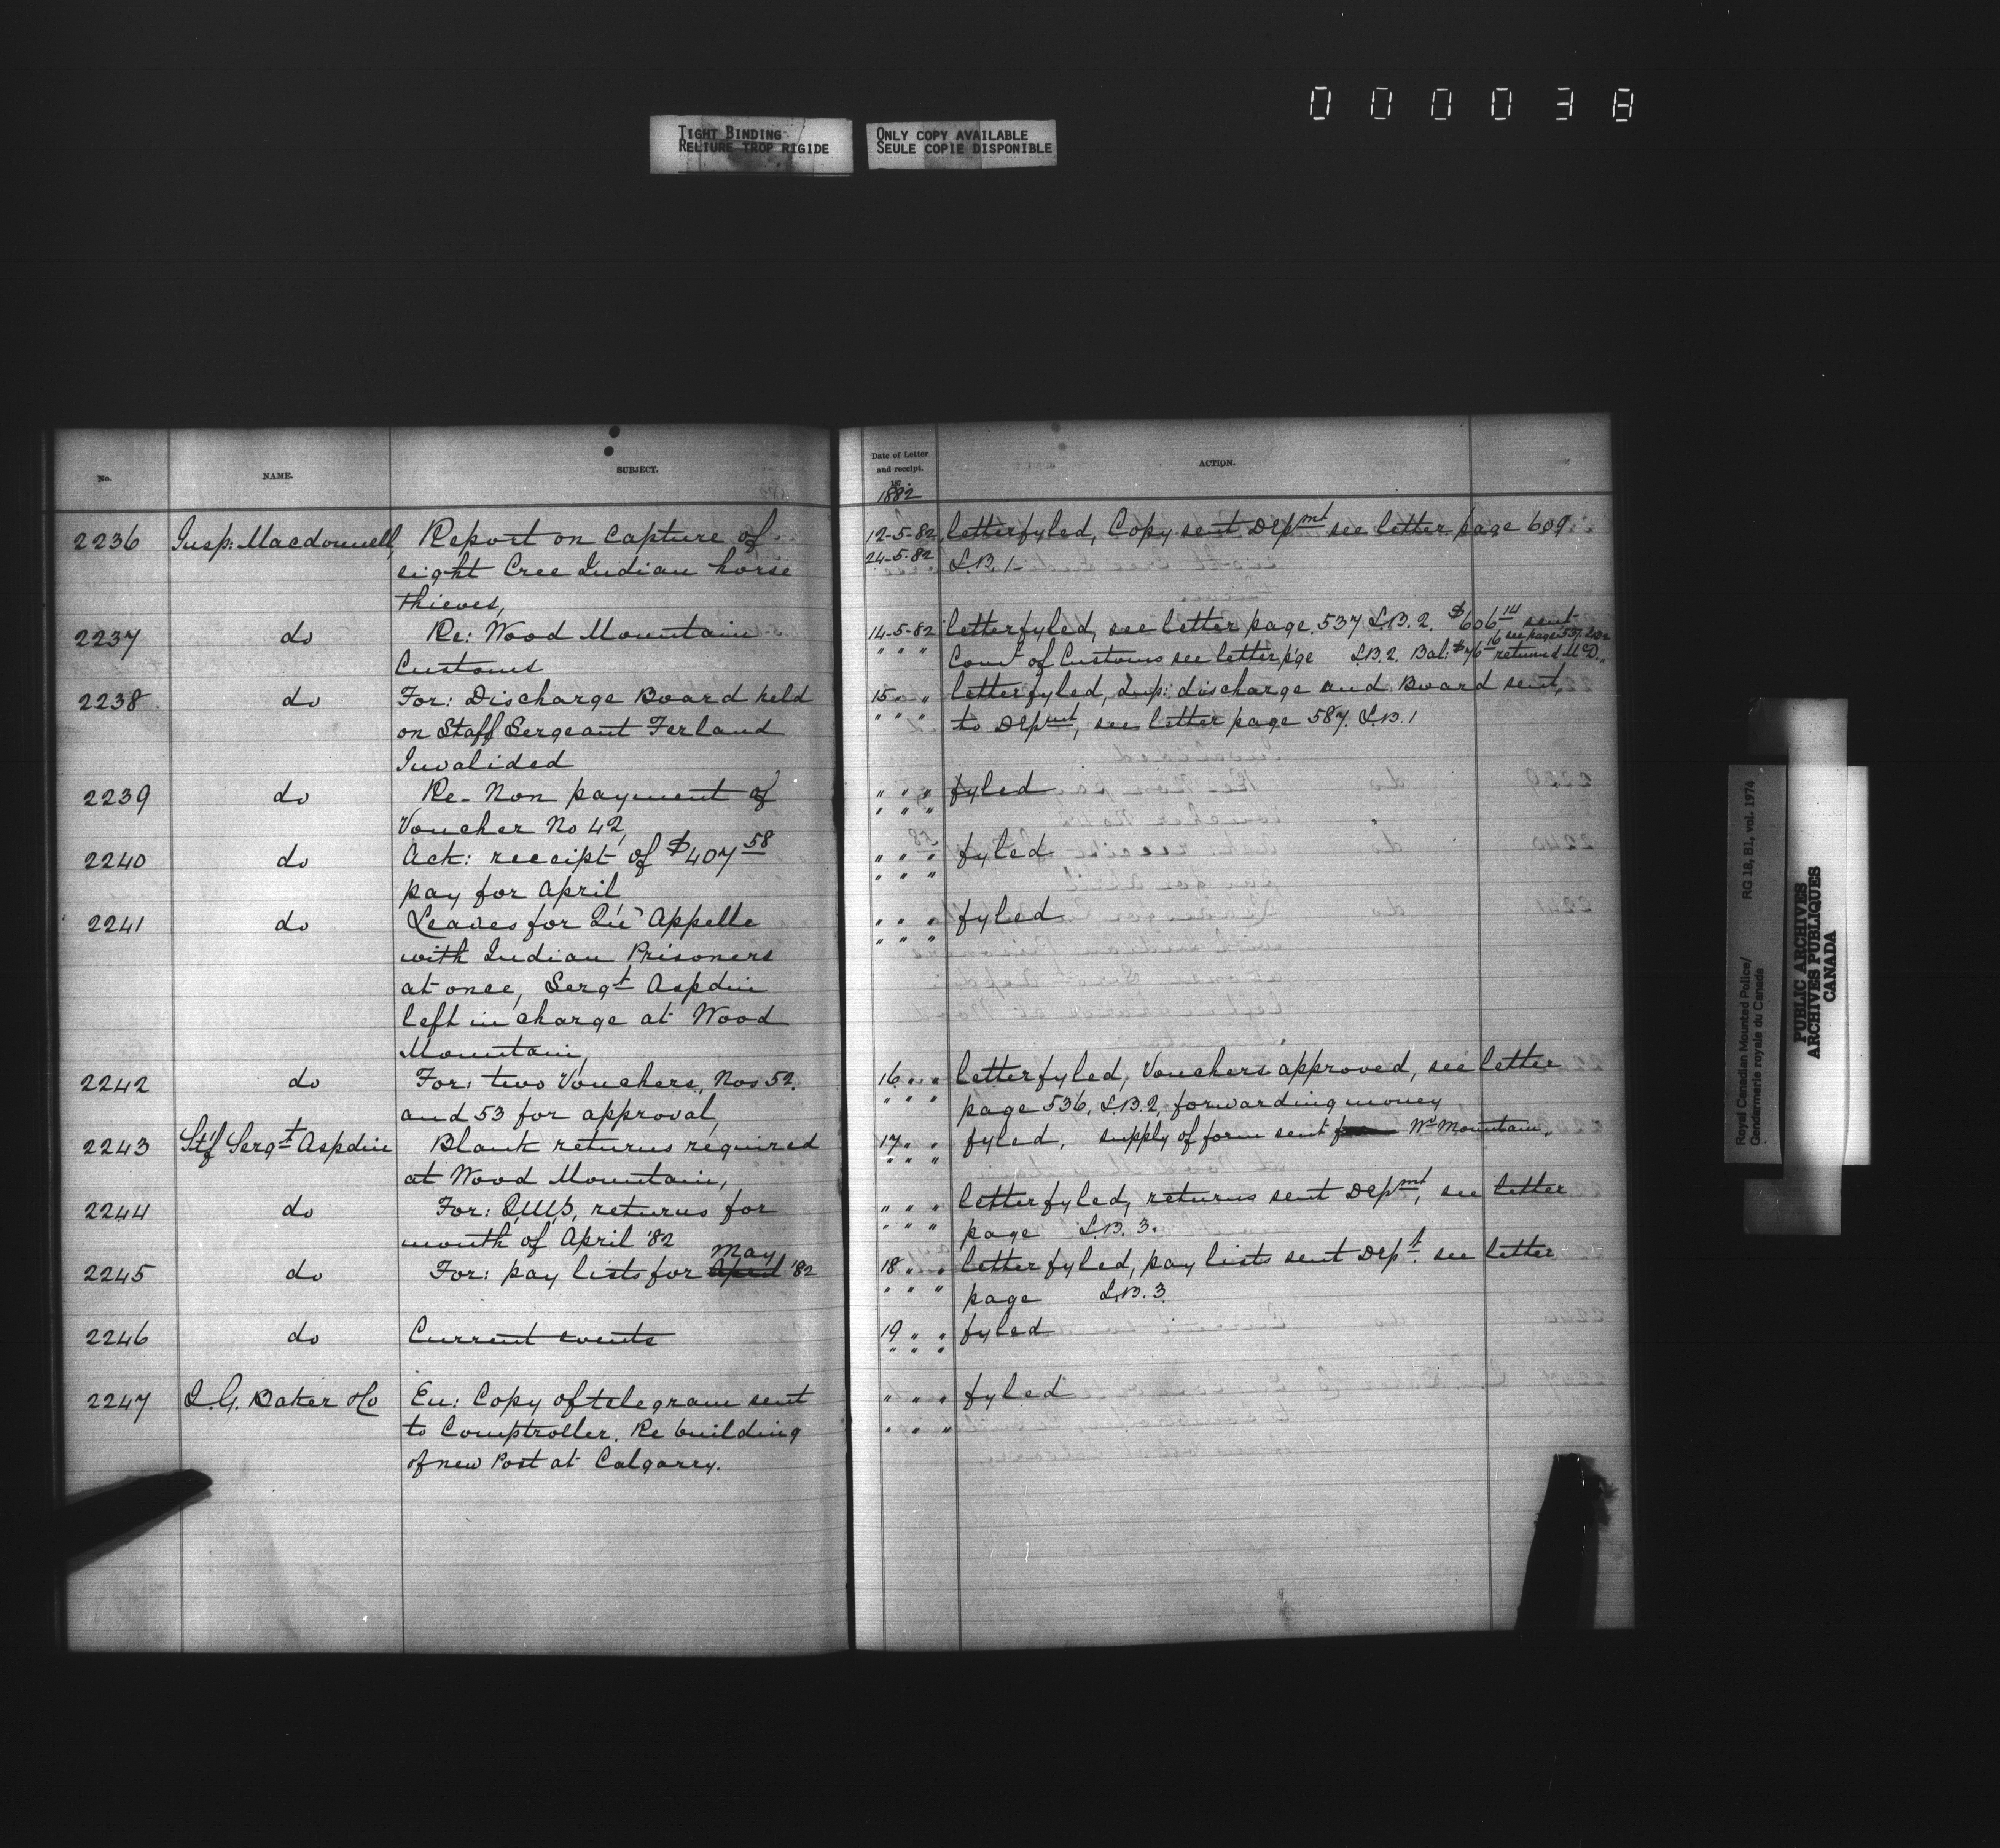 000038
TIGHT BINDING
RELIURE TROP RIGIDE
ONLY COPY AVAILABLE
SEULE COPIE DISPONIBLE
No.
NAME.
SUBJECT.
Date of Letter
and receipt.
1882
ACTION.
2236 Insp: Macdonnell, Report on capture of
eight Cree Indian horse
thieves,
12-5-82 letter fyled, Copy sent Depmt see letter page 609
24-5-82 L.B. 1
2237 do Re: Wood Mountain
Customs
14-5-82 letter fyled, see letter page 537 L.B. 2. $606 14 sent
" " " Comr of Customs see letter p'ge L.B. 2. Bal: $76 16 returned McD.
see page 537 L.B.2
2238 do For: Discharge Board held
on Staff Sergeant Ferland
Invalided
15 " " letter fyled, Dup: discharge and Board sent,
" " " to Depmt, see letter page 587. L.B. 1
2239 do Re- Non payment of
Voucher No 42,
" " " fyled
" " "
2240 do Ack: receipt of $407 58
pay for April
" " " fyled
" " "
2241 do Leaves for Qu' Appelle
with Indian Prisoners
at once, Sergt Aspdin
left in charge at Wood
Mountain,
" " " fyled
" " "
2242 do For: two Vouchers, Nos 52.
and 53 for approval,
16 " " letter fyled, Vouchers approved, see letter
" " " page 536, L.B. 2, forwarding money
2243 Stf Sergt Aspdin Blank returns required
at Wood Mountain,
17 " " fyled, supply of form sent Wd Mountain,
" " "
2244 do For: Q.M.S. returns for
month of April '82
" " " letter fyled, returns sent Depmt, see letter
" " " page L.B. 3.
2245 do For: pay lists for April May '82
18 " " letter fyled, pay lists sent Dept. see letter
" " " page L.B. 3.
2246 do Current events
19 " " fyled
" " "
2247 I. G. Baker &Co En: Copy of telegram sent
to Comptroller. Re building
of new Post at Calgarry.
" " " fyled
" " "
Royal Canadian Mounted Police/
Gendarmerie royale du Canada
RG 18, B1, vol. 1974
PUBLIC ARCHIVES
ARCHIVES PUBLIQUES
CANADA